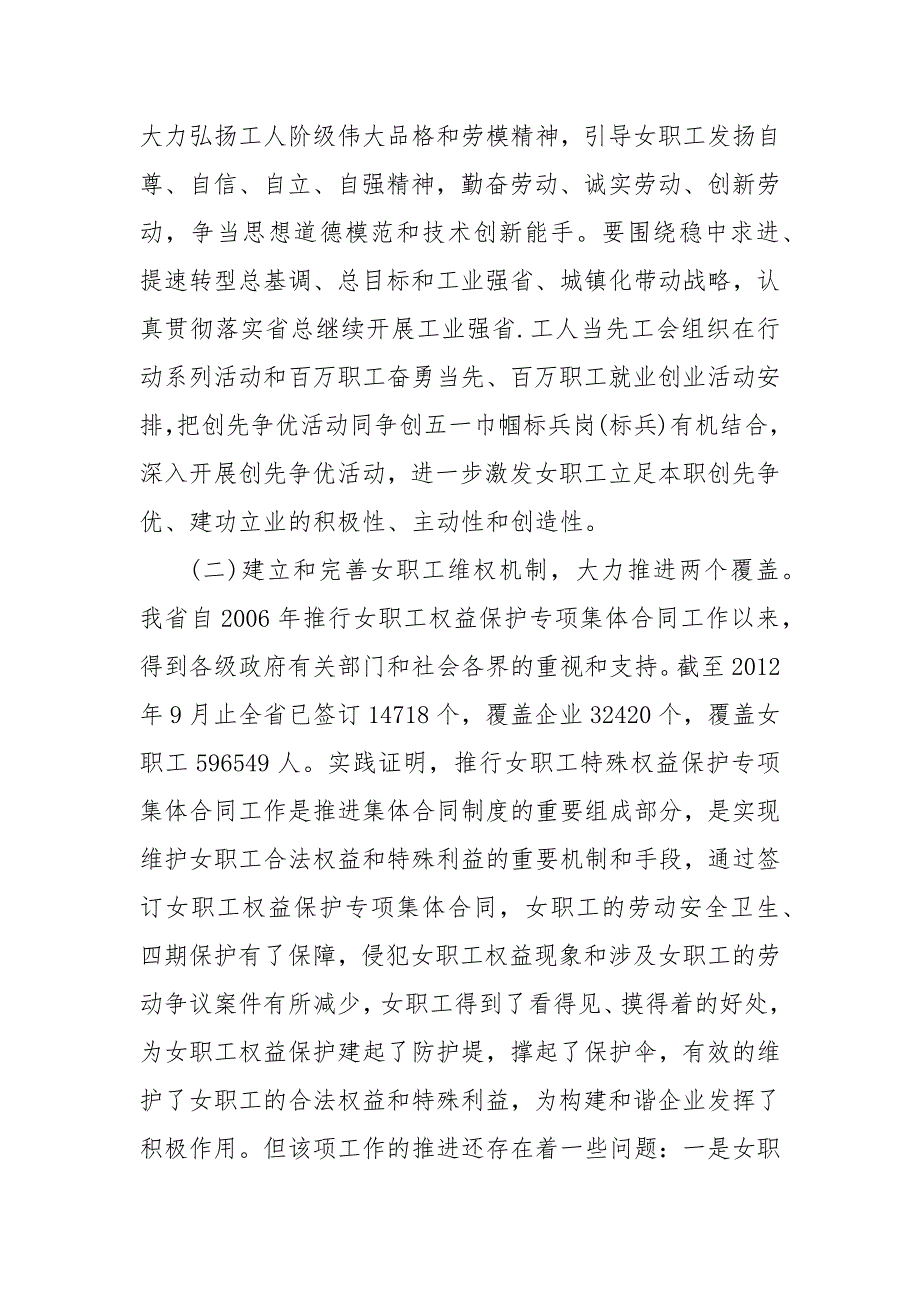 大力弘扬工人阶级伟大品格和劳模精神，引导女职工发扬自
尊、自信、自立、自强精神，勤奋劳动、诚实劳动、创新劳
动，争当思想道德模范和技术创新能手。要围绕稳中求进、
提速转型总基调、总目标和工业强省、城镇化带动战略，认
真贯彻落实省总继续开展工业强省.工人当先工会组织在行
动系列活动和百万职工奋勇当先、百万职工就业创业活动安
排,把创先争优活动同争创五一巾帼标兵岗(标兵)有机结合，
深入开展创先争优活动，进一步激发女职工立足本职创先争
优、建功立业的积极性、主动性和创造性。
(二)建立和完善女职工维权机制，大力推进两个覆盖。
我省自 2006 年推行女职工权益保护专项集体合同工作以来，
得到各级政府有关部门和社会各界的重视和支持。截至 2012
年 9 月止全省已签订 14718 个，覆盖企业 32420 个，覆盖女
职工 596549 人。实践证明，推行女职工特殊权益保护专项
集体合同工作是推进集体合同制度的重要组成部分，是实现
维护女职工合法权益和特殊利益的重要机制和手段，通过签
订女职工权益保护专项集体合同，女职工的劳动安全卫生、
四期保护有了保障，侵犯女职工权益现象和涉及女职工的劳
动争议案件有所减少，女职工得到了看得见、摸得着的好处，
为女职工权益保护建起了防护堤，撑起了保护伞，有效的维
护了女职工的合法权益和特殊利益，为构建和谐企业发挥了
积极作用。但该项工作的推进还存在着一些问题：一是女职